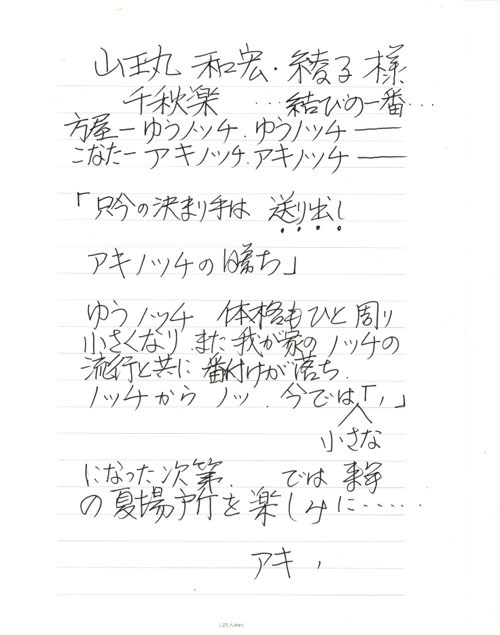 山王丸 和宏・綾子 様
千秋楽 …結びの一番…
方屋ーゆうノッチ.ゆうノッチ――
こなたーアキノッチ.アキノッチ――
「只今の決まり手は 送り出し
アキノッチの勝ち」
ゆうノッチ 体格もひと周り
小さくなり また我が家のノッチの
流行と共に 番付けが落ち.
ノッチから ノッ.今では「ノ」
小さな
になった次第. では 来年
の夏場所を楽しみに……
アキ ノ